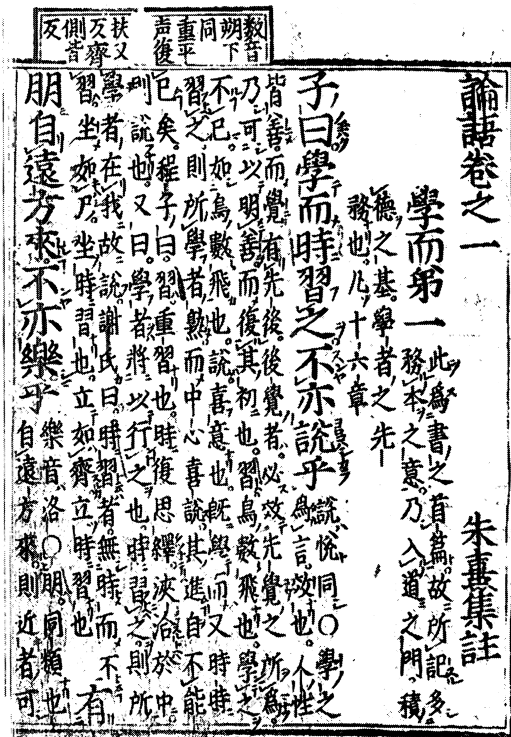 数音
朔下
同
重平
声復
扶又
反齊
側皆
反
論語卷之一 朱熹集註
學而第一
此爲書之首篇故所記多
務本之意乃入道之門積
德之基學者之先
務也凡十六章
子曰學而時習之不亦說乎
說悅同○學之
爲言效也人性
皆善而覺有先後後覺者必效先覺之所爲
乃可以明善而復其初也習鳥數飛也學之
不已如鳥數飛也說喜意也既學而又時時
習之則所學者熟而中心喜說其進自不能
已矣程子曰習重習也時復思繹浹洽於中
則說也又曰學者將以行之也時習之則所
學者在我故說謝氏曰時習者無時而不
習坐如尸坐時習也立如齊立時習也
有
朋自遠方來不亦樂乎
樂音洛○朋同類也
自遠方來則近者可